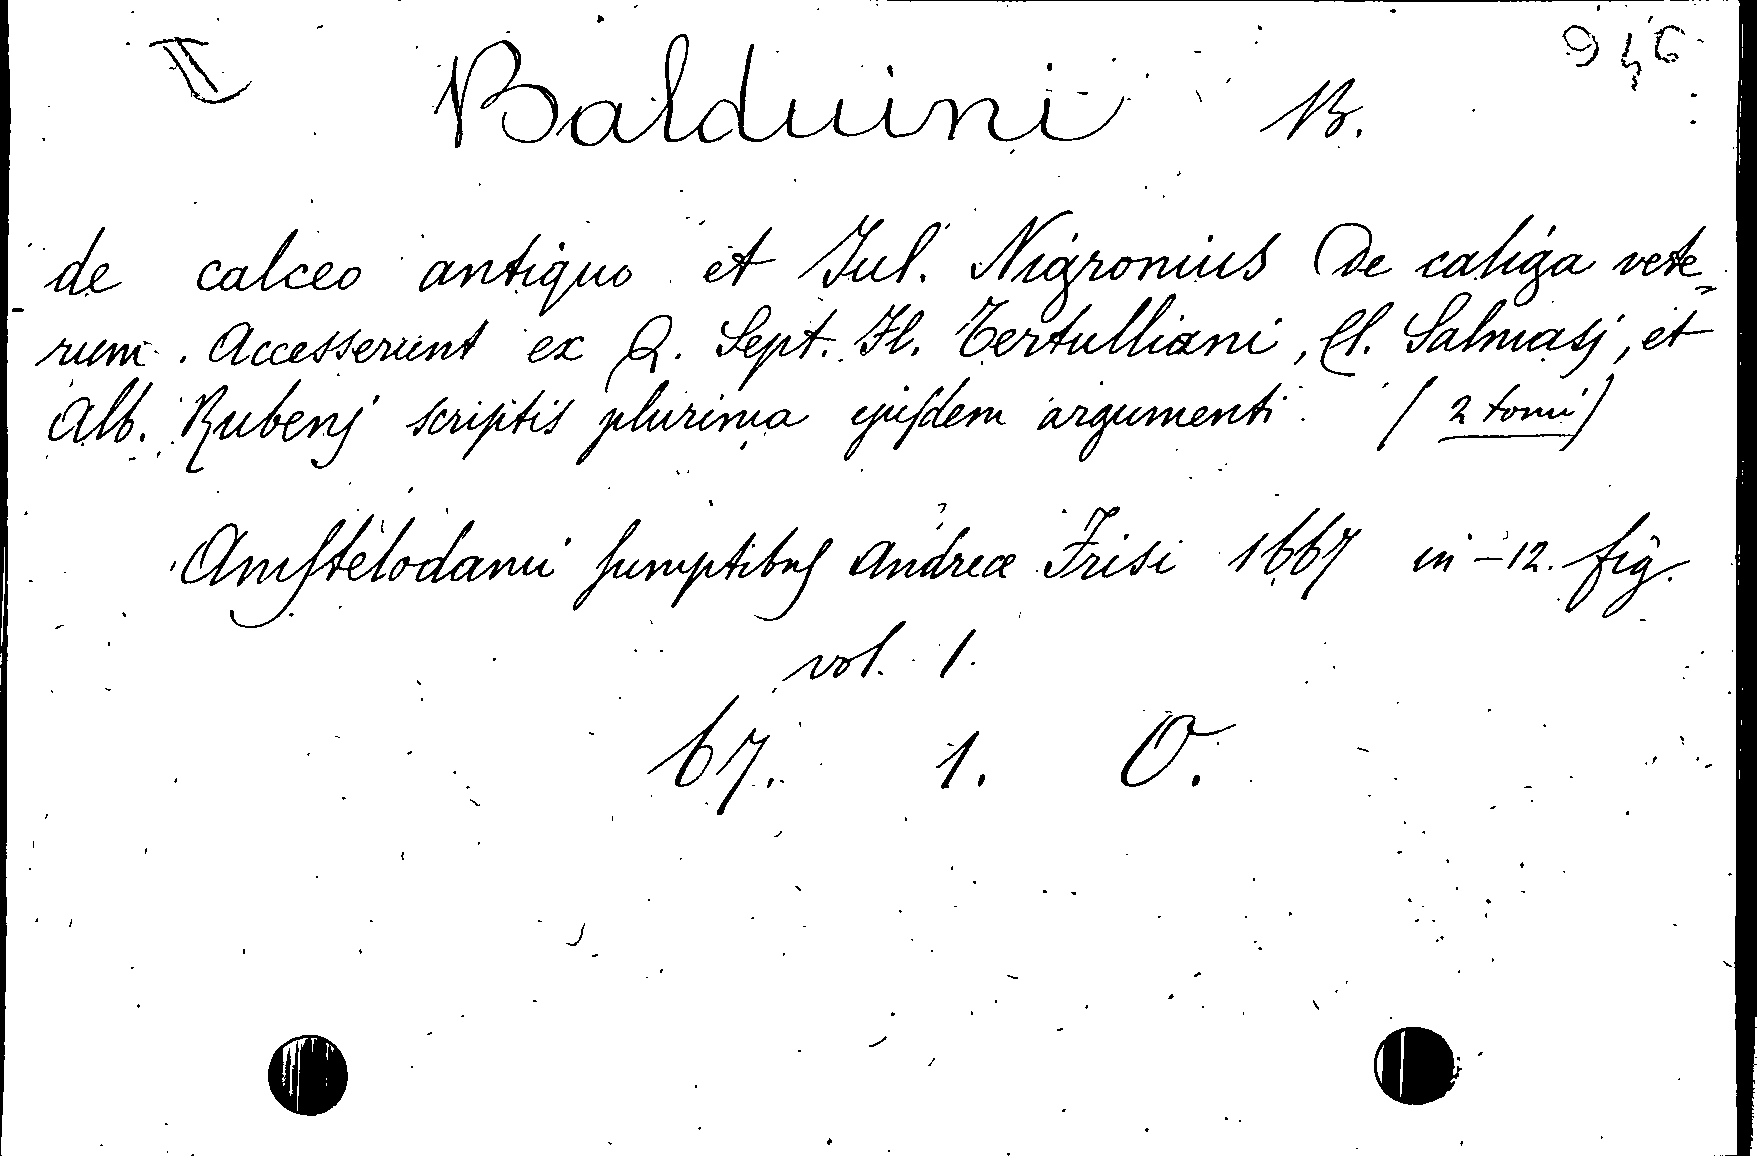 II Balduini B. 946
de calceo antiquo et Jul. Nigronius De caliga vete-
rum. Accesserunt ex Q. Sept. Fl. Tertulliani, Cl. Salmasj, et
Alb. Rubenj scriptis plurima ejuſdem argumenti. (2 tomi)
Amſtelodami ſumptibuſ Andreæ Frisi 1667 in-12. fig.
vol. 1.
67. 1. O.